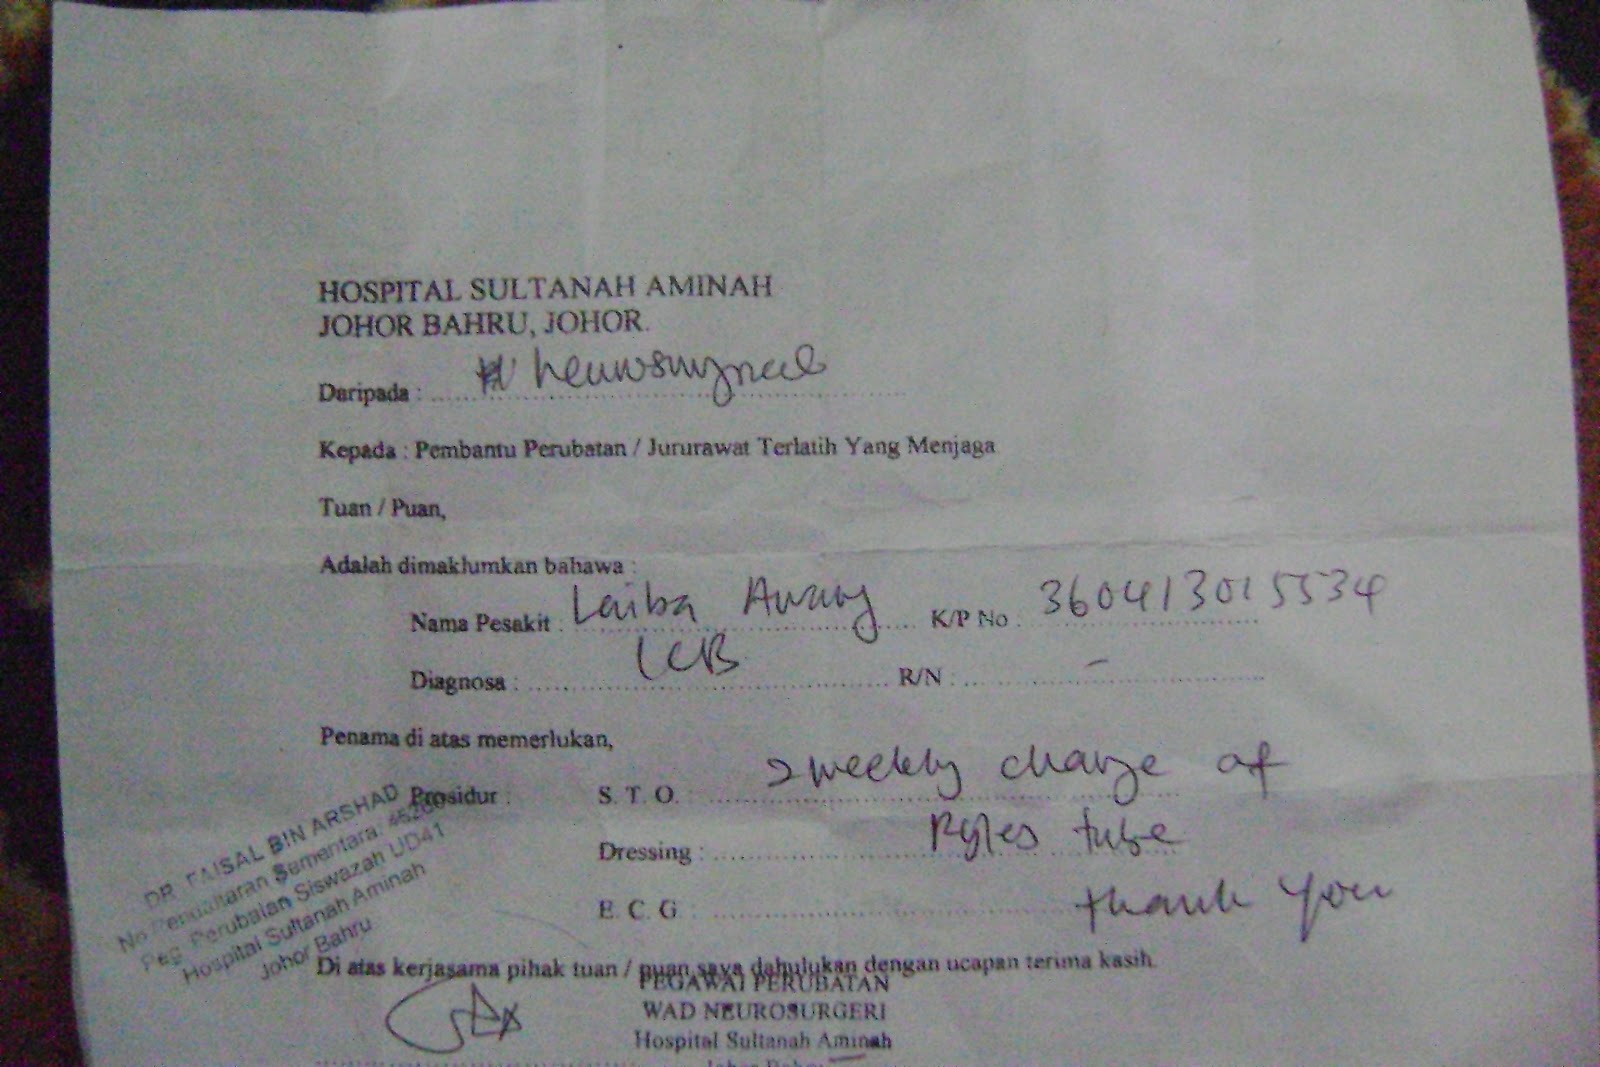 HOSPITAL SULTANAH AMINAH
JOHOR BAHRU, JOHOR.
Daripada : neurosurgical
Kepada : Pembantu Perubatan / Jururawat Terlatih Yang Menjaga
Tuan / Puan,
Adalah dimaklumkan bahawa :
Nama Pesakit : Laiba Awang K/P No : 360413015534
Diagnosa : ICB R/N : -
Penama di atas memerlukan,
Prosidur : S. T. O. : 2 weekly change of
Dressing : Ryles tube
E. C. G : thank you
DR. FAISAL BIN ARSHAD
No Pendaftaran Sementara:
Peg. Perubatan Siswazah UD41
Hospital Sultanah Aminah
Johor Bahru
Di atas kerjasama pihak tuan / puan saya dahulukan dengan ucapan terima kasih.
PEGAWAI PERUBATAN
WAD NEUROSURGERI
Hospital Sultanah Aminah
Johor Bahru